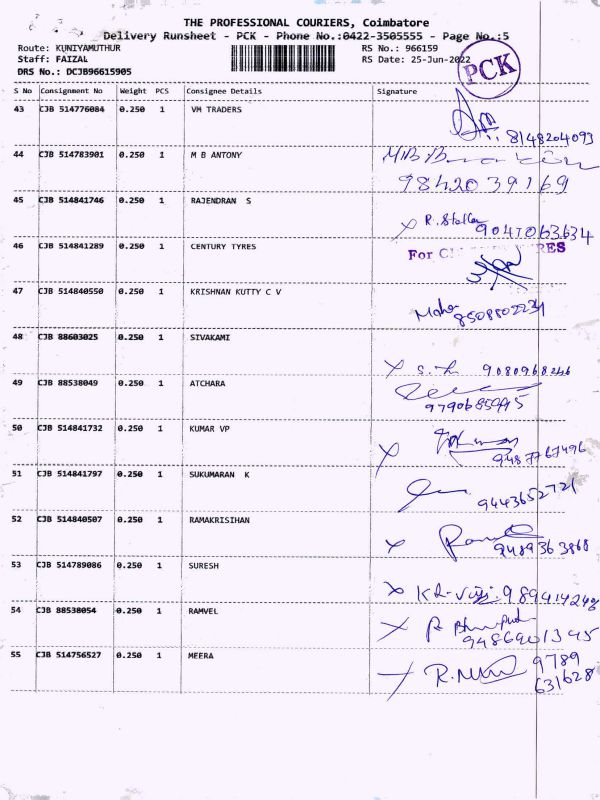 THE PROFESSIONAL COURIERS, Coimbatore
Delivery Runsheet - PCK - Phone No.:0422-3505555 - Page No.:5
Route: KUNIYAMUTHUR RS No.: 966159
Staff: FAIZAL RS Date: 25-Jun-2022
DRS No.: DCJB96615905
PCK
S No Consignment No Weight PCS Consignee Details Signature
43 CJB 514776084 0.250 1 VM TRADERS
8148204093
44 CJB 514783901 0.250 1 M B ANTONY
9842039169
45 CJB 514841746 0.250 1 RAJENDRAN S
R. Stella 9047063634
46 CJB 514841289 0.250 1 CENTURY TYRES
For
47 CJB 514840550 0.250 1 KRISHNAN KUTTY C V
8508802231
48 CJB 88603025 0.250 1 SIVAKAMI
9080968246
49 CJB 88538049 0.250 1 ATCHARA
9790685995
50 CJB 514841732 0.250 1 KUMAR VP
9487767496
51 CJB 514841797 0.250 1 SUKUMARAN K
9443652721
52 CJB 514840507 0.250 1 RAMAKRISIHAN
9489363868
53 CJB 514789086 0.250 1 SURESH
54 CJB 88538054 0.250 1 RAMVEL
9486901345
55 CJB 514756527 0.250 1 MEERA
9789
631628